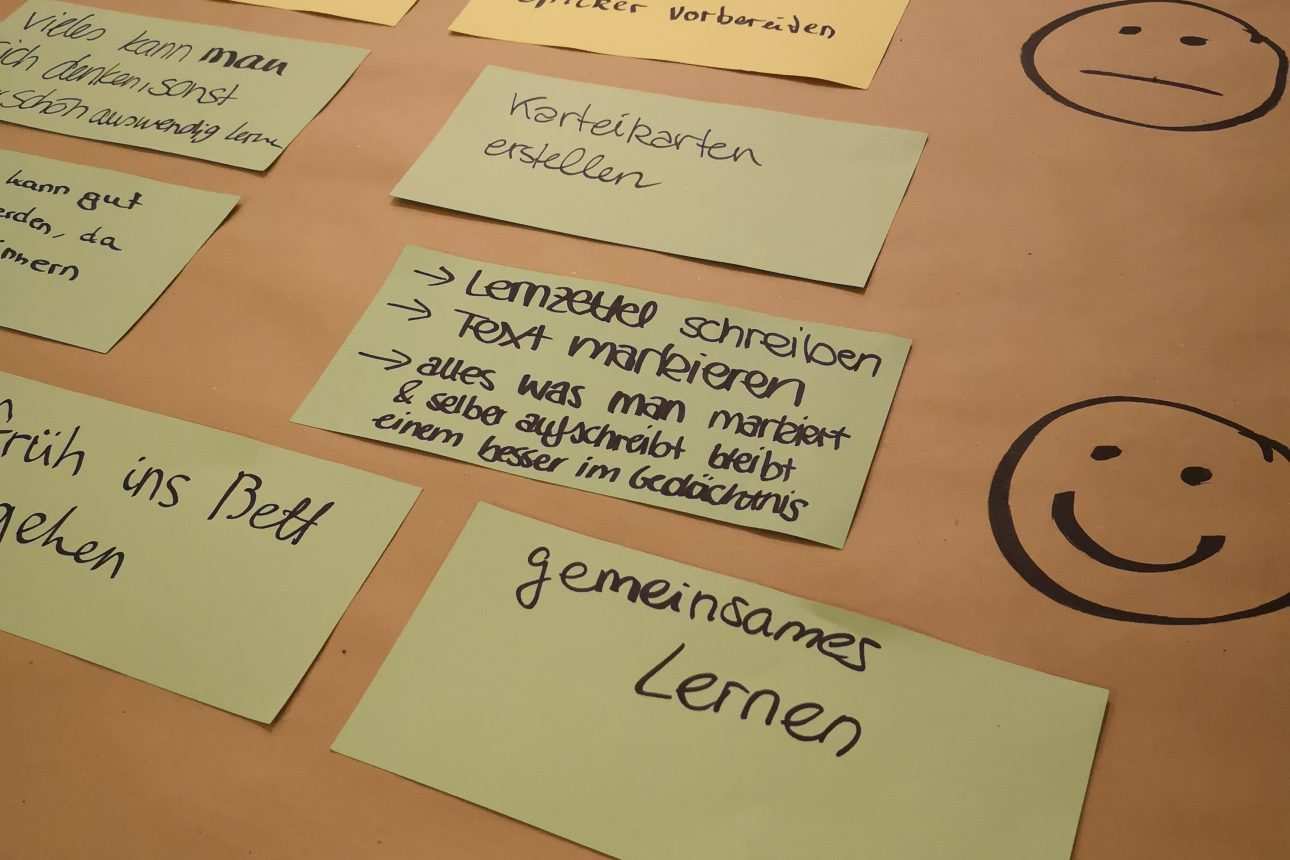 Spicker vorbereiden
Vieles kann man
sich denken, sonst
schön auswendig lernen
Karteikarten
erstellen
kann gut
werden, da
→ Lernzettel schreiben
→ Text markieren
→ alles was man markiert
& selber aufschreibt bleibt
einem besser im Gedächtnis
früh ins Bett
gehen
gemeinsames
Lernen